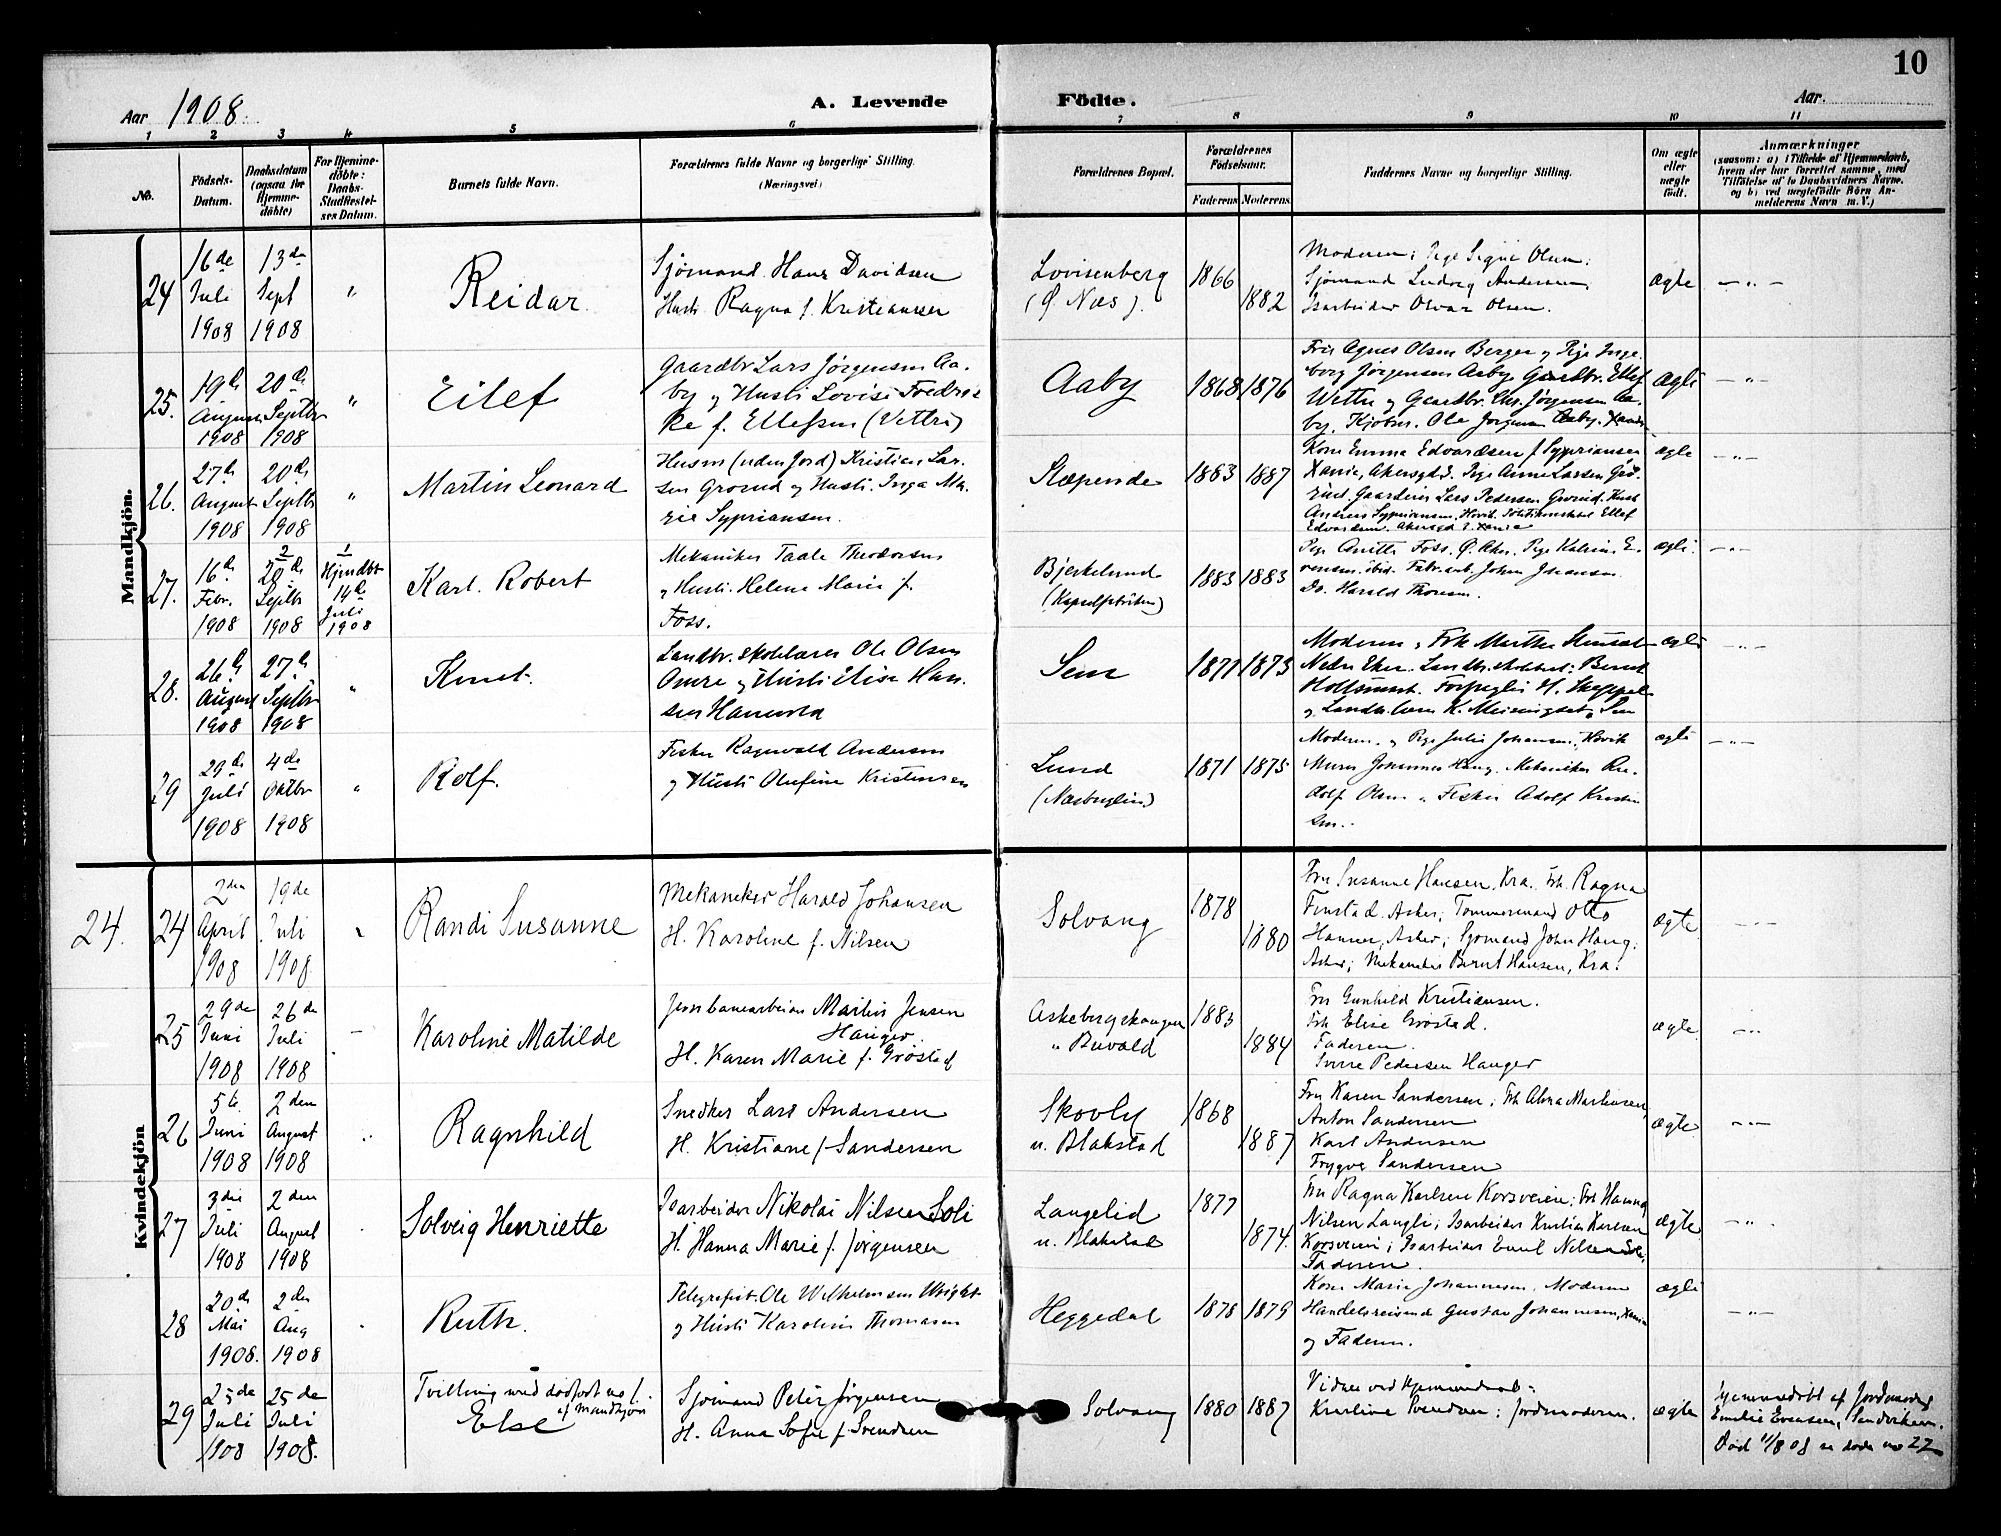 10
Aar 1908.
A. Levende
Födte.
Aar.
1 2 3 4 5 6 7 8 9 10 11
No.
Födsels-
Datum.
Daabsdatum
(ogsaa for
Hjemme-
döbte)
For Hjemme-
döbte:
Daabs-
Stadfestel-
ses Datum.
Barnets fulde Navn.
Forældrenes fulde Navne og borgerlige Stilling.
(Næringsvei)
Forældrenes Bopæl.
Forældrenes
Födselsaar.
Faderens Moderens
Faddernes Navne og borgerlige Stilling.
Om ægte
eller
uægte
födt.
Anmærkninger
(saasom: a) i Tilfælde af Hjemmedaab,
hvem der har forrettet samme, med
Tilföielse af to Daabsvidners Navne,
og b) ved uægtefödte Börn An-
melderens Navn m. V.)
Mandkjön.
24
16de
Juli
1908
13de
Sept
1908
"
Reidar.
Sjømand Hans Davidsen
Husti Ragna f. Kristiansen
Lovisenberg
(Ø Næs).
1866
1882
Moderen; Pige Signe Olsen;
Sjømand Ludvig Andersen,
Isarbeider Olsen.
ægte
— " —
25.
19de
August
1908
20de
Septbr
1908
"
Eilef
Gaardbr Lars Jørgensen Aa-
by og Husti Lovise Fredrik-
ke f. Ellefsen (Vettre)
Aaby
1868
1876
Fru Agnes Olsen Berger og Pige Inge-
borg Jørgensen Aaby. Gaardbr. Ellef
Wettre og Gaardbr. Chr. Jørgensen Aa-
by. Kjøbm. Ole Jørgensen Aaby. Xania
ægte
— " —
26.
27de
August
1908
20de
Septbr
1908
"
Martin Leonard
Husm (uden Jord) Kristian Lar-
sen Grønd og Husti. Inga Ma-
rie Sypriansen.
Slæpende
1883
1887
Kone Emma Edvardsen f Sypriansen
Xania, Akersgd Pige Anne Larsen
Lars Pedersen Kusk
Andreas Sypriansen, Høvik. Ellef
Edvardsen. Akersgd Xania
ægte
— " —
27.
16de
Febr.
1908
2
28de
Septbr
1908
1
Hjmdbt
14de
Juli
1908
Karl. Robert
Mekaniker Taale Theodorsen
og Husti. Helene Marie f.
Foss.
Bjerkelund
(Kapselfabriken)
1883
1883
Pige Anette Foss. Ø. Aker. Pige Katrine E-
vensen. ibid. Fabr.arb. Johan Johansen
Do. Harald Thoresen.
ægte.
— " —
28.
26de
August
1908
27de
Septbr
1908
"
Knut.
Landbr. skolelærer Ole Olsen
Omre og Husti Elise Han-
sen Hanevold
Sem
1871
1873
Moderen. Frk Marthe
Nedre Eker. Bernt
Holtsmark. H. Skappel
og Landbr. lærer K. Meisingset, Sem
ægte
— " —
29
29de
Juli
1908
4de
Oktbr
1908
"
Rolf.
Fisker Ragnvald Andersen
og Husti Olufine Kristensen
Lund
(Næsbugten)
1871
1875
Moderen. og Pige Julie Johansen. Høvik
Murer Johannes Haug. Mekaniker Ru-
dolf Olsen. Fisker Adolf Kristen
sen.
ægte
— " —
Kvindekjön
24.
24
2den
April
1908
19de
Juli
1908
"
Randi Susanne
Mekaniker Harald Johansen
H. Karoline f. Nilsen
Solvang
1878
1880
Fru Susanne Hansen, Kra. Frk. Ragna
Finstad. Asker; Tømmermand Otto
Hansen, Asker; Sjømand John Haug;
Asker; Mekaniker Bernt Hansen, Kra.
ægte
— " —
25
29de
Juni
1908
26de
Juli
1908
—
Karoline Matilde
Jernbanearbeider Martin Jensen
Hanger
H. Karen Marie f. Grøstad
Askebergskangen
u Buvald
1883
1884
Fru Gunhild Kristiansen.
Frk Elise Grøstad.
Faderen.
Sverre Pedersen Hanger
ægte.
— " —
26
5te
Juni
1908
2den
August
1908
"
Ragnhild
Snedker Lars Andersen
H. Kristiane f. Sandersen
Skovly
u. Blakstad
1868
1887
Fru Karen Sandersen; Frk Alma Martinsen,
Anton Sandersen
Karl Andersen
Trygve Sandersen
ægte
— " —
27
3die
Juli
1908
2den
August
1908
Solveig Henriette
Isarbeider Nikolai Nilsen Soli
H. Hanna Marie f. Jørgensen
Langelid
u. Blakstad
1877
1874.
Fru Ragna Karlsen Korsveien; Frk Hanna
Nilsen Langli; Isarbeider Kristian Karlsen
Korsveien; Isarbeider Emil Nilsen Soli,
Faderen.
ægte
— " —
28
20de
Mai
1908.
2den
Aug
1908
Ruth.
Telegrafist Ole Wilhelmsen Wright
og Husti Karoline Thomasen
Heggedal
1878
1879
Kone Marie Johannesen. Moderen
Handelsreisende Gustav Johannesen, Xania
og Faderen.
ægte
— " —
29
25de
Juli
1908
25de
Juli
1908.
Tvilling med dødfødt no 1.
af Mandkjøn
Else
Sjømand Peter Jørgensen
H. Anna Sofie f. Svendsen
Solvang
1880
1887
Vidner ved Hjemmedaab:
Karline Svendsen; Jordmoderen.
ægte
Hjemmedøbt af Jordmoder
Emilie Evensen, Sandviken.
Død 11/8 08 se døde no 22